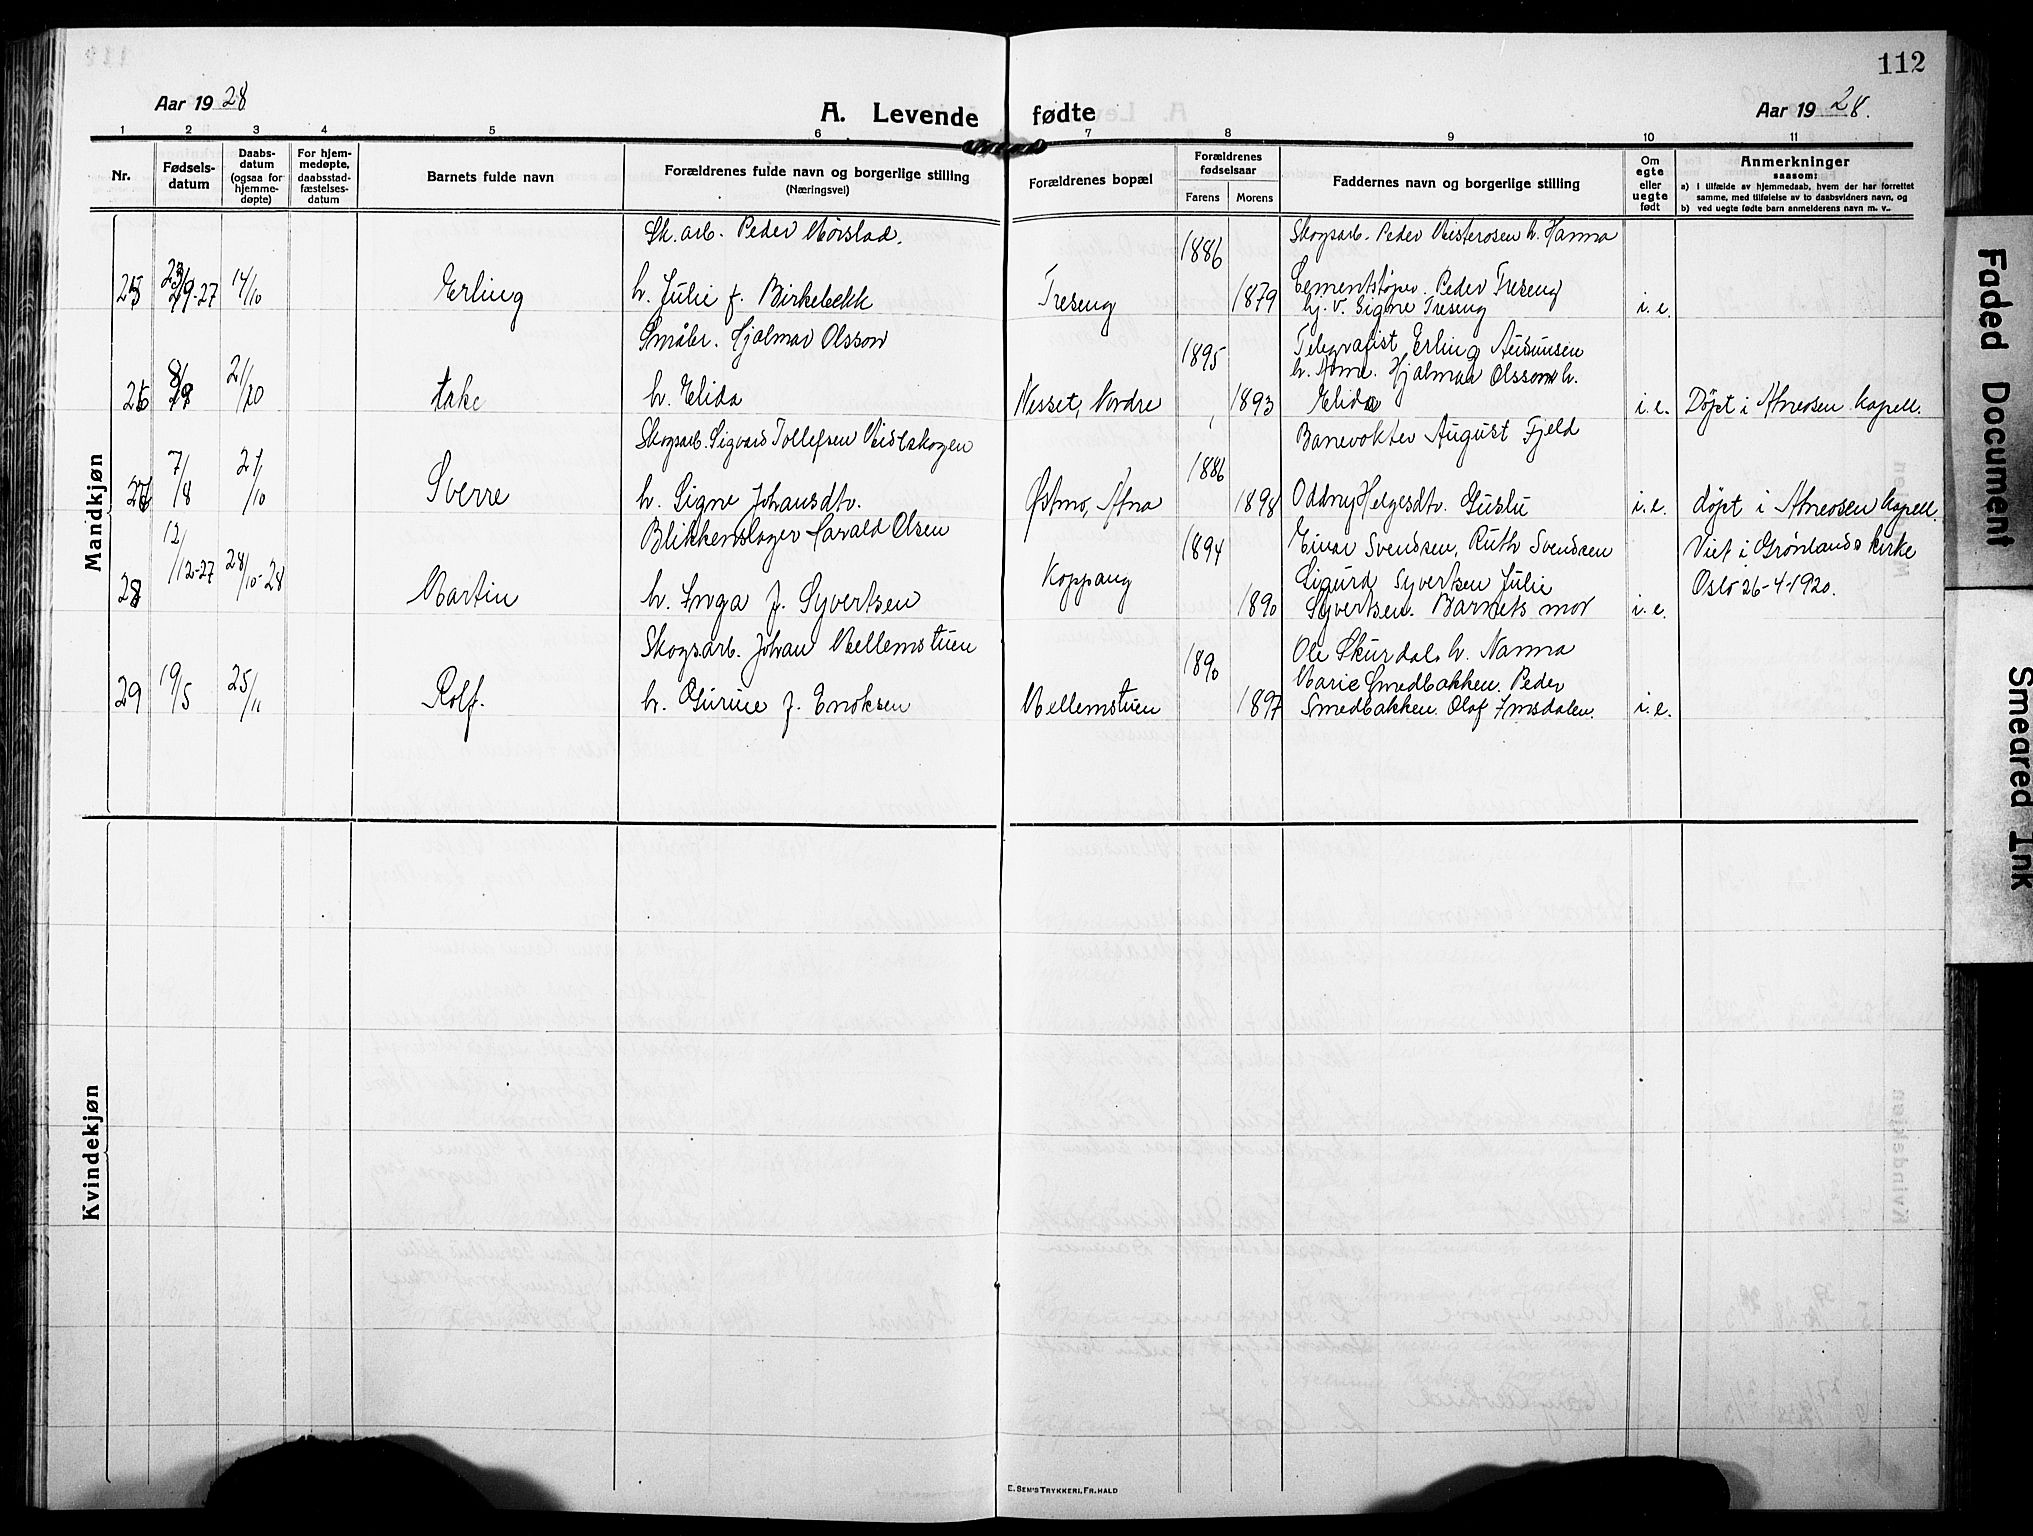 112
Aar 1928
A. Levende fødte
Aar 1928.
1 2 3 4 5 6 7 8 9 10 11
Nr.
Fødsels-
datum
Daabs-
datum
(ogsaa for
hjemme-
døpte)
For hjem-
medøpte,
daabsstad-
fæstelses-
datum
Barnets fulde navn
Forældrenes fulde navn og borgerlige stilling
(Næringsvei)
Forældrenes bopæl
Forældrenes
fødselsaar
Farens Morens
Faddernes navn og borgerlige stilling
Om
egte
eller
uegte
født
Anmerkninger
saasom:
a) I tilfælde av hjemmedaab, hvem der har forrettet
samme, med tilføielse av to daabsvidners navn, og
b) ved uegte fødte barn anmelderens navn m. v..
Mandkjøn
Sk. arb. Peder Mørstad.
1886
Skogsarb. Peder Misterosen h. Hanna
25
14/10
Erling
h. Julie f. Birkebekk
Treseng
1879
Cementstøper. Peder Treseng
hj. v. Signe Treseng
i. e.
Småbr. Hjalmar Olsson
1895
Telegrafist Erling Amundsen
h. Anne. Hjalmar Olsson h.
26
21/10
Åke
h. Elida
Nesset, Nordre
1893
Elida
i. e.
Døpt i Atneosen kapell.
Skogsarb. Sigvard Tollefsen Midtskogen
1886
Banevokter August Fjeld
27
7/8
21/10
Sverre
h. Signe Johansdtr.
Østmo, Atna
1898
Oddny Helgesdtr.
i. e.
døpt i Atneosen kapell.
Blikkenslager Harald Olsen
1894
Einar Svendsen, Ruth Svendsen
Viet i Grønlands kirke
28
12/12-27
28/10-28
Martin
h. Inga f. Syvertsen
Koppang
1890
Sigurd Syvertsen Julie
Syvertsen. Barnets mor
i. e.
Oslo 26-4-1920.
Skogsarb. Johan Mellemstuen
1890
Ole Skurdal h. Nanna
Marie Smedbakken. Peder
29
19/5
25/11
Rolf.
h. Gurine f. Enoksen
Mellemstuen
1897
Smedbakken. Olaf Imsdalen.
i. e.
Kvindekjøn
E. Sem's Trykkeri, Fr.hald
Faded Document
Smeared Ink